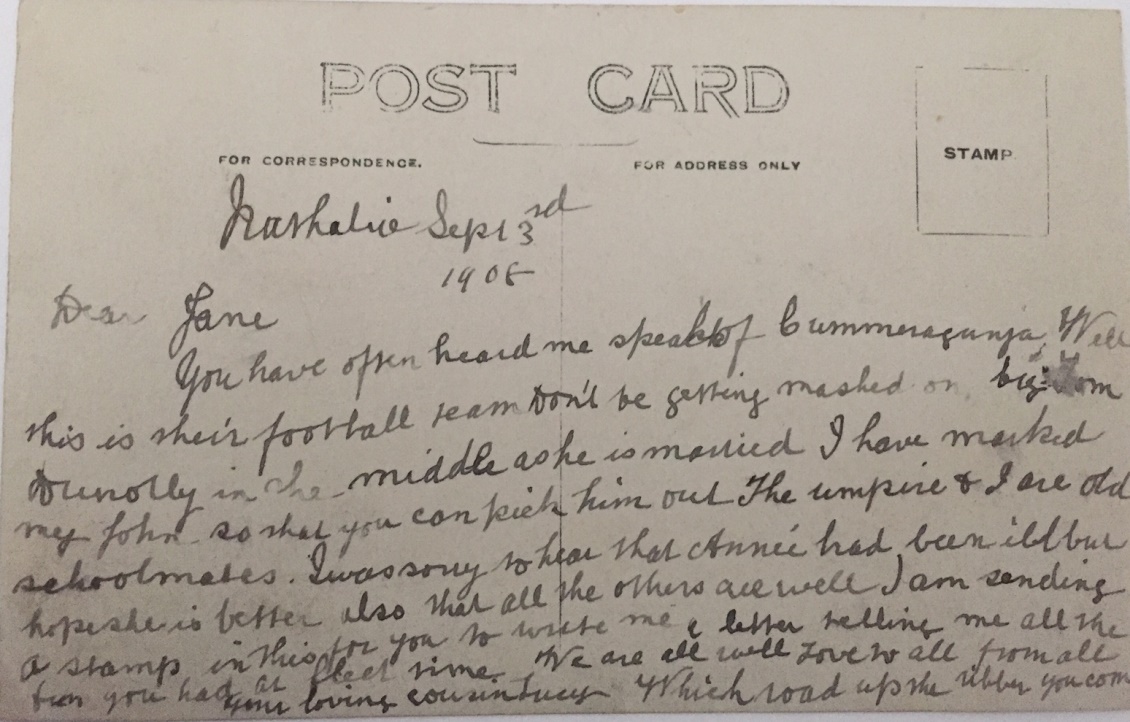 POST CARD
FOR CORRESPONDENCE.
FOR ADDRESS ONLY
STAMP
Nathalie Sept 3rd
1908
Dear Jane
You have often heard me speak of Cummeragunja. Well
this is their football team Don't be getting mashed on big Tom
Dunolly in the middle as he is married I have marked
my John so that you can pick him out The umpire & I are old
schoolmates. I was sorry to hear that Annie had been ill but
hope she is better also that all the others are well I am sending
a stamp in this for you to write me a letter telling me all the
fun you had at fleet time. We are all well Love to all from all
Your loving cousin Lucy Which road up the you com